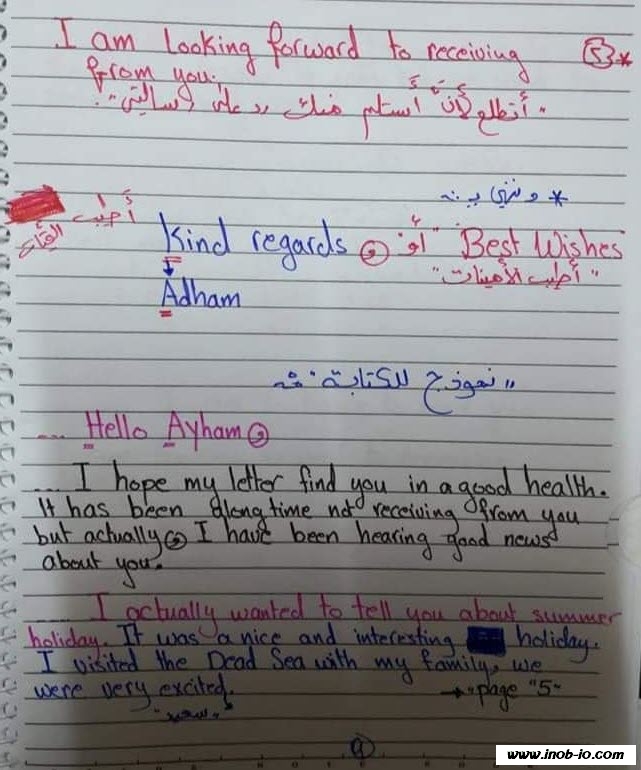 I am looking forward to receiving (5)*
from you.
"أتطلع لأن أستلم منك رد على رسالتي".
* وننهي بـ :-
أطيب
Kind regards , "أو" Best Wishes
"أطيب الأمنيات"
Adham
"نموذج للكتابة" :-
... Hello Ayham,
... I hope my letter find you in a good health.
It has been along time not receiving from you
but actually, I have been hearing good news
about you.
.... I actually wanted to tell you about summer
holiday. It was a nice and interesting holiday.
I visited the Dead Sea with my family, we
were very excited. → "page "5"
www.inob-io.com